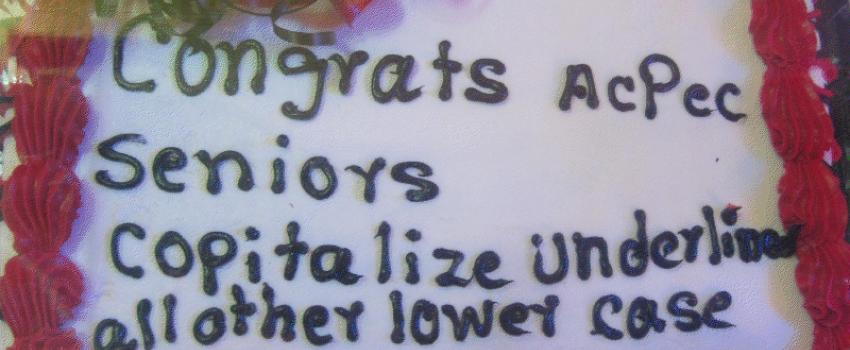 Congrats AcPec
Seniors
Copitalize underline
all other lower case